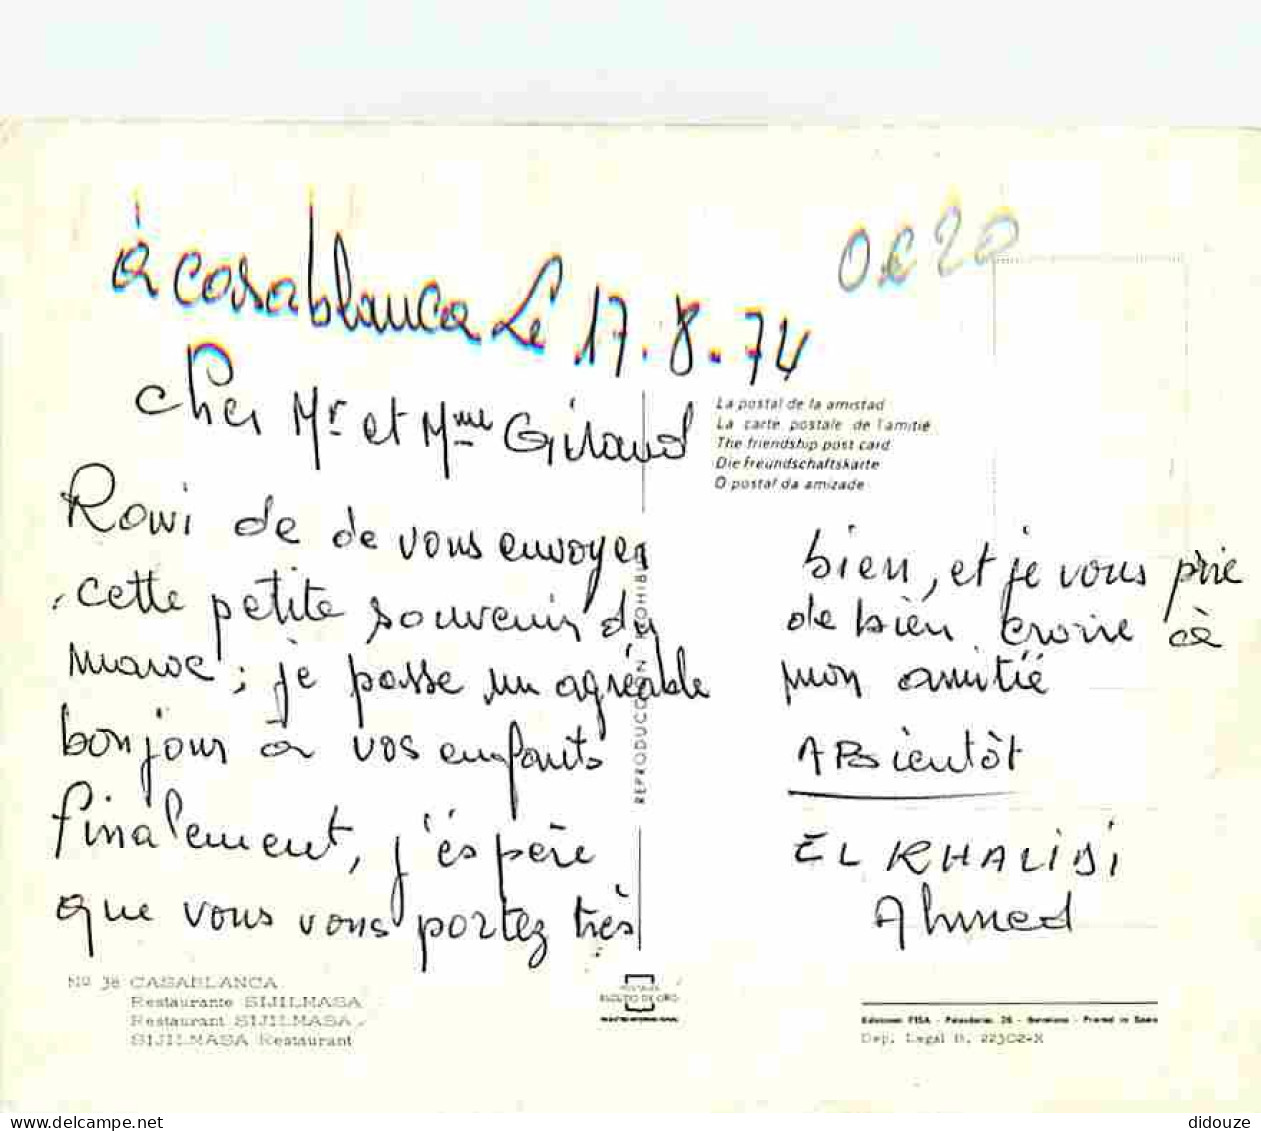 à casablanca Le 17.8.74
0€20
cher Mr et Mme Giraud
La postal de la amistad
La carte postale de l'amitié
The friendship post card
Die Freundschaftskarte
O postal da amizade
Ravi de de vous envoyer
cette petite souvenir du
maroc; je passe un agréable
bonjour à vos enfants
finalement, j'éspère
que vous vous portez très
REPRODUCCION PROHIBIDA
bien, et je vous prie
de bien croire cè
mon amitié
A Bientôt
EL KHALIDI
Ahmed
No 38 CASABLANCA
Restaurante SIJILMASA
Restaurant SIJILMASA
SIJILMASA Restaurant
POSTALES
ESCUDO DE ORO
Ediciones FISA - Palaudarias, 26 - Barcelona - Printed in Spain
Dep. Legal B. 22302-X
didouze